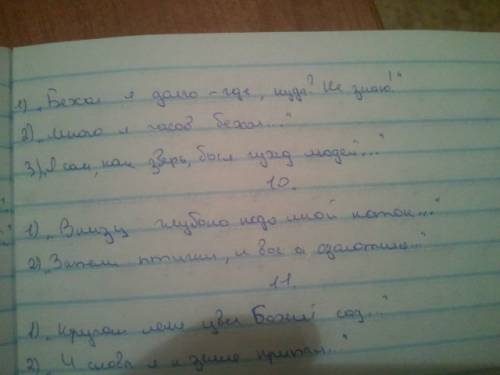 1) „Бежал я долго – где, куда? Не знаю!"
2) „Много я часов бежал..."
3) „Я сам, как зверь, был чужд людей..."
10.
1) „Внизу глубоко подо мной поток..."
2) „Запели птички, и восток озолотили..."
11.
1) „Кругом меня цвел Божий сад..."
2) „И снова я к земле припал..."